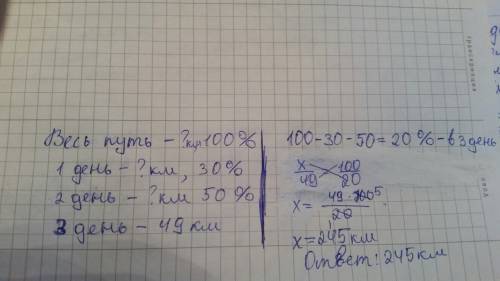 Весь путь - ? км 100%
1 день - ? км, 30%
2 день - ? км 50%
3 день - 49 км
100-30-50=20%-в 3 день
x/49 100/20
x= 49·100 5/20 1
x=245км
Ответ: 245км